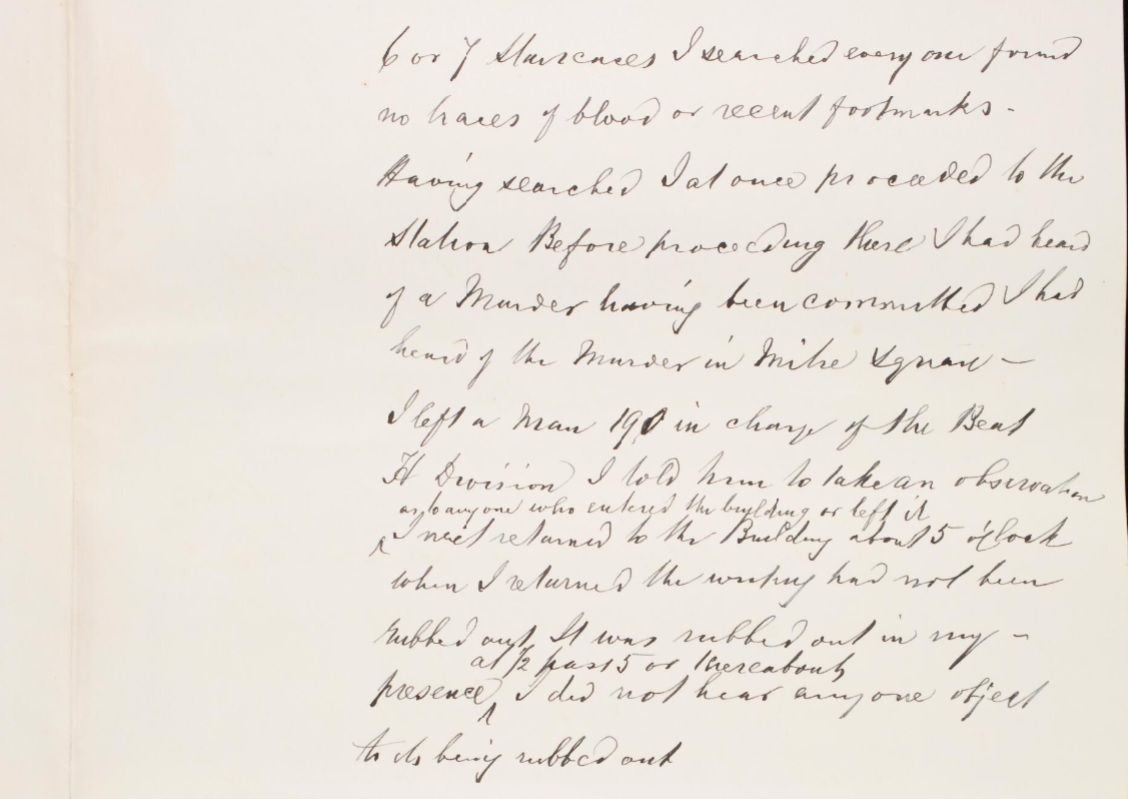 6 or 7 staircases I searched every one found
no traces of blood or recent footmarks -
Having searched I at once proceeded to the
Station Before proceeding there I had heard
of a Murder having been committed I had
heard of the Murder in Mitre Square -
I left a man 190 in charge of the Beat
H Division I told him to take an observation
as to any one who entered the building or left it
I next returned to the Building about 5 o'clock
when I returned the writing had not been
rubbed out It was rubbed out in my -
at 1/2 past 5 or thereabouts
presence, I did not hear anyone object
to its being rubbed out